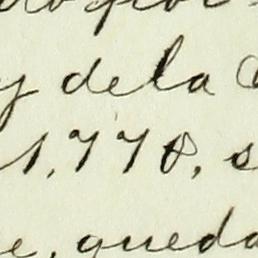 y de la
1,778, s
e, queda